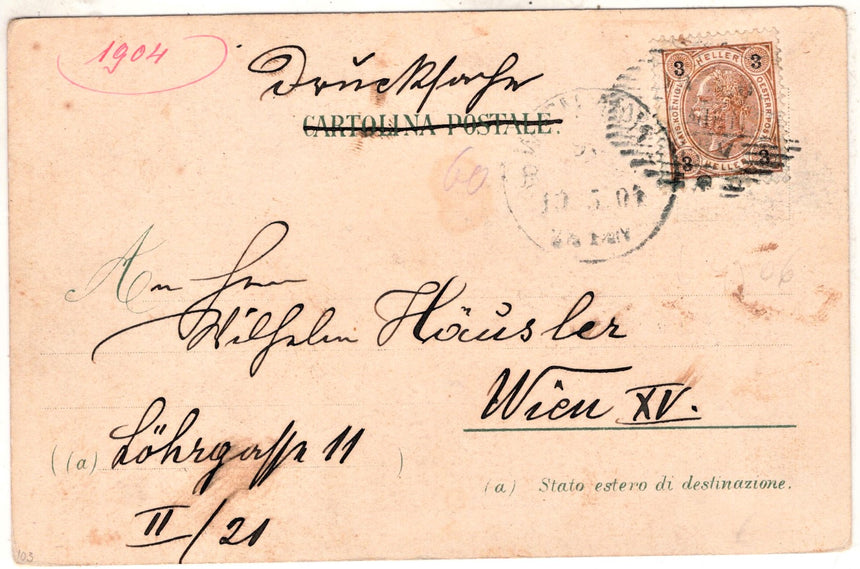 1904
Drucksache
CARTOLINA POSTALE.
3 HELLER 3
KAIS. KOENIGL. OESTERR. POST
3 HELLER 3
60
An Herrn
Wilhelm Häusler
Wien XV.
(a) Löhrgasse 11
II/21
(a) Stato estero di destinazione.
103